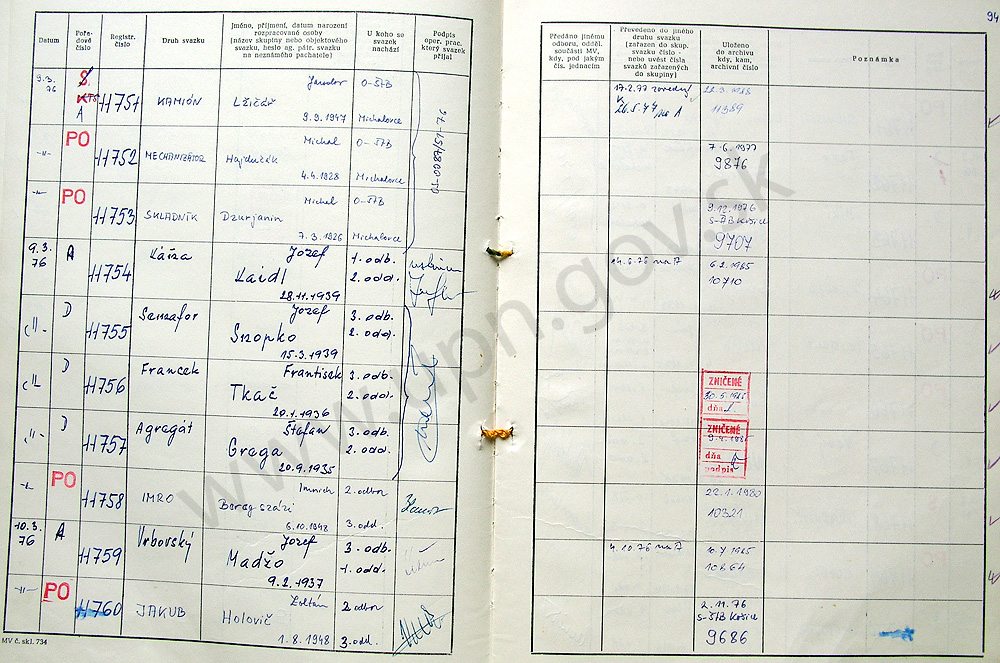 94
Datum
Pořadové číslo
Registr. číslo
Druh svazku
Jméno, příjmení, datum narození rozpracované osoby
(název skupiny nebo objektového svazku, heslo ag. pátr. svazku na neznámého pachatele)
U koho se svazek nachází
Podpis oper. prac. který svazek přijal
Předáno jinému odboru, odděl. součásti MV, kdy, pod jakým čís. jednacím
Převedeno do jiného druhu svazku (zařazen do skup. svazku číslo - nebo uvést čísla svazků zařazených do skupiny)
Uloženo do archivu kdy, kam, archivní číslo
Poznámka
9.3. 76
A
11751
KAMIÓN
Jaroslav
Lžičář
9.9.1947
O-ŠTB
Michalovce
17.2.77
26.5.77 na A
22.3.1988
11389
-"-
PO
11752
MECHANIZÁTOR
Michal
Hajdučák
4.4.1928
O-ŠTB
Michalovce
7.6.1977
9876
-"-
PO
11753
SKLADNÍK
Michal
Dzurjanin
7.3.1926
O-ŠTB
Michalovce
9.12.1976
S-ŠTB Košice
9707
9.3. 76
A
11754
Káša
Jozef
Kaidl
28.11.1939
1. odb.
2. odd.
14.6.76 na A
6.2.1985
10710
-"-
D
11755
Semafor
Jozef
Snopko
15.3.1939
3. odb.
2. odd.
-"-
D
11756
Francek
František
Tkáč
20.1.1936
3. odb.
2. odd.
ZNIČENÉ
dňa
-"-
D
11757
Agregát
Štefan
Graga
20.9.1935
3. odb.
2. odd.
ZNIČENÉ
dňa
podpis
-"-
PO
11758
IMRO
Imrich
6.10.1948
2. odbor
3. odd.
22.1.1980
10321
10.3. 76
A
11759
Vrbovský
Jozef
Madžo
9.2.1937
3. odb.
1. odd.
4.10.76 na A
10.7.1985
10864
-"-
PO
11760
JAKUB
Zoltán
Holovič
1.8.1948
2 odbor
3. odd.
2.11.76
S-ŠTB Košice
9686
MV č. skl. 734
www.upn.gov.sk